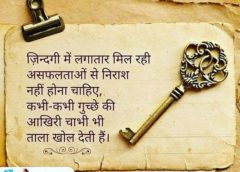 ज़िन्दगी में लगातार मिल रही
असफलताओं से निराश
नहीं होना चाहिए,
कभी-कभी गुच्छे की
आखिरी चाभी भी
ताला खोल देती हैं।